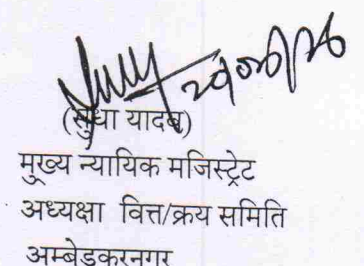 (सुधा यादव)
मुख्य न्यायिक मजिस्ट्रेट
अध्यक्षा वित्त/क्रय समिति
अम्बेडकरनगर